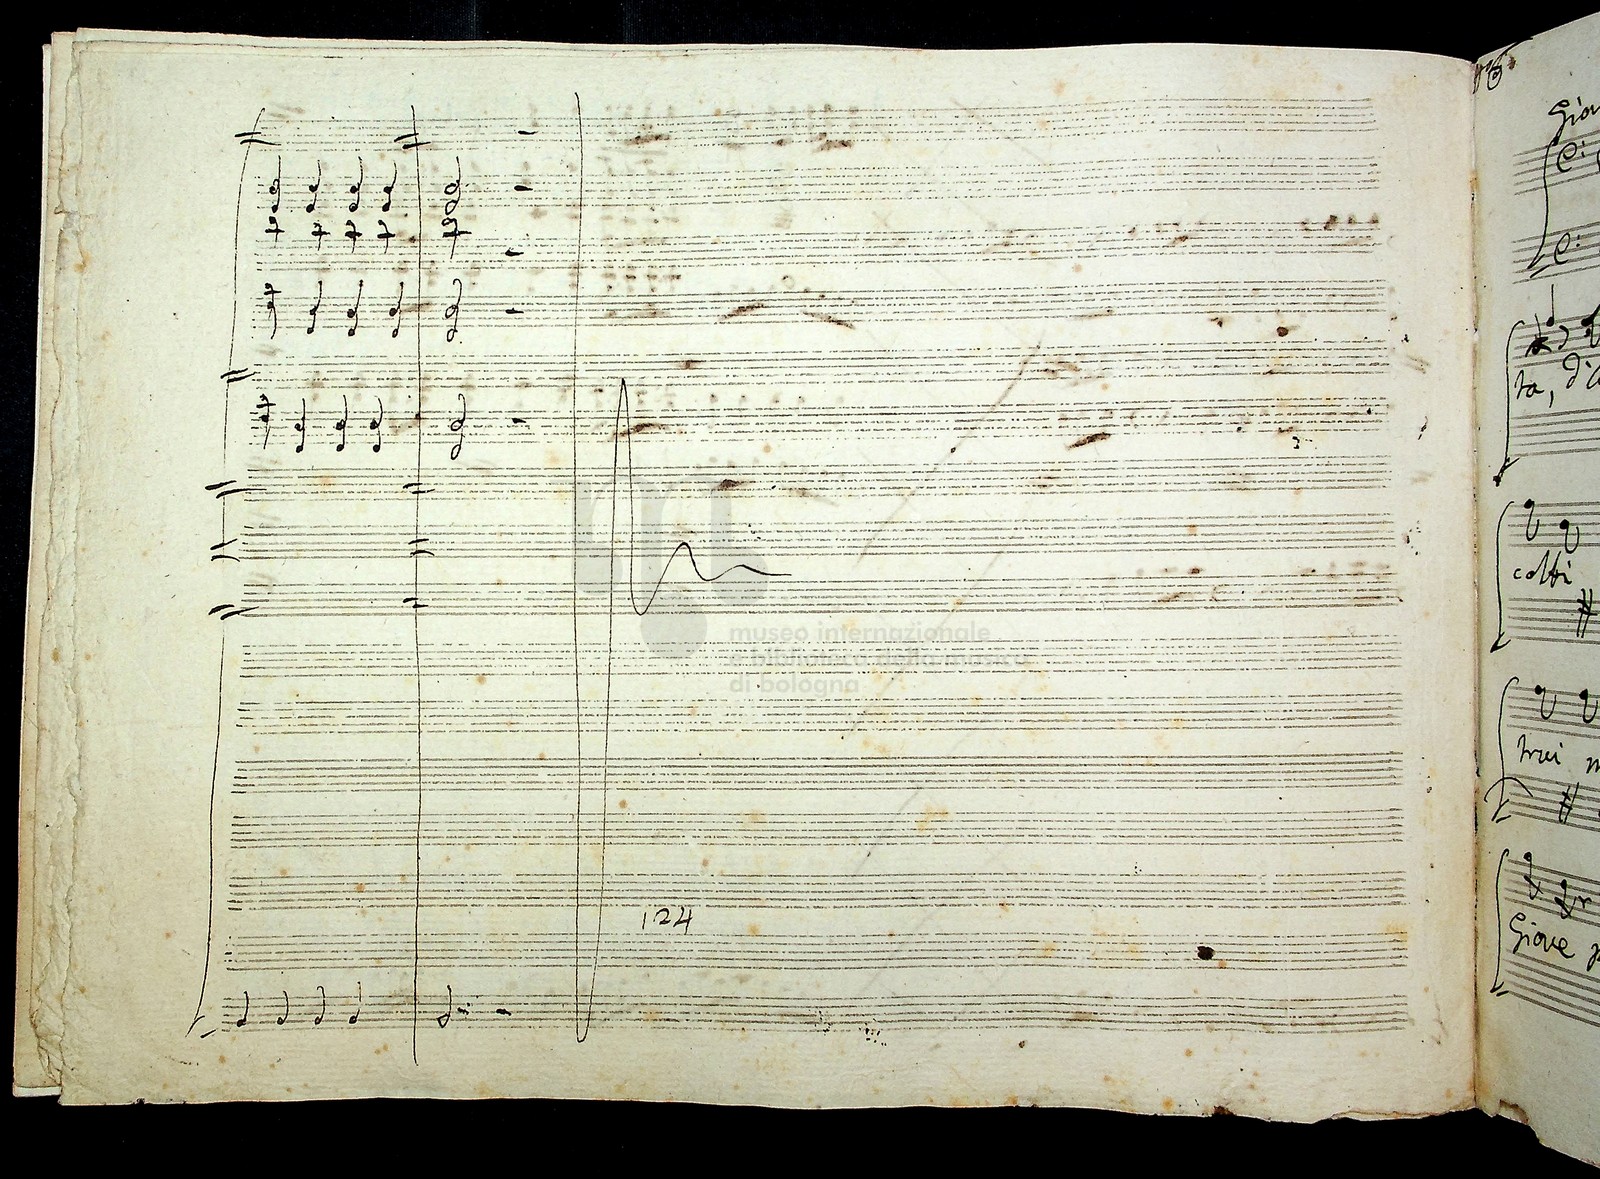 124
museo internazionale
e biblioteca della musica
di bologna
ta,
colti
trai
Giove